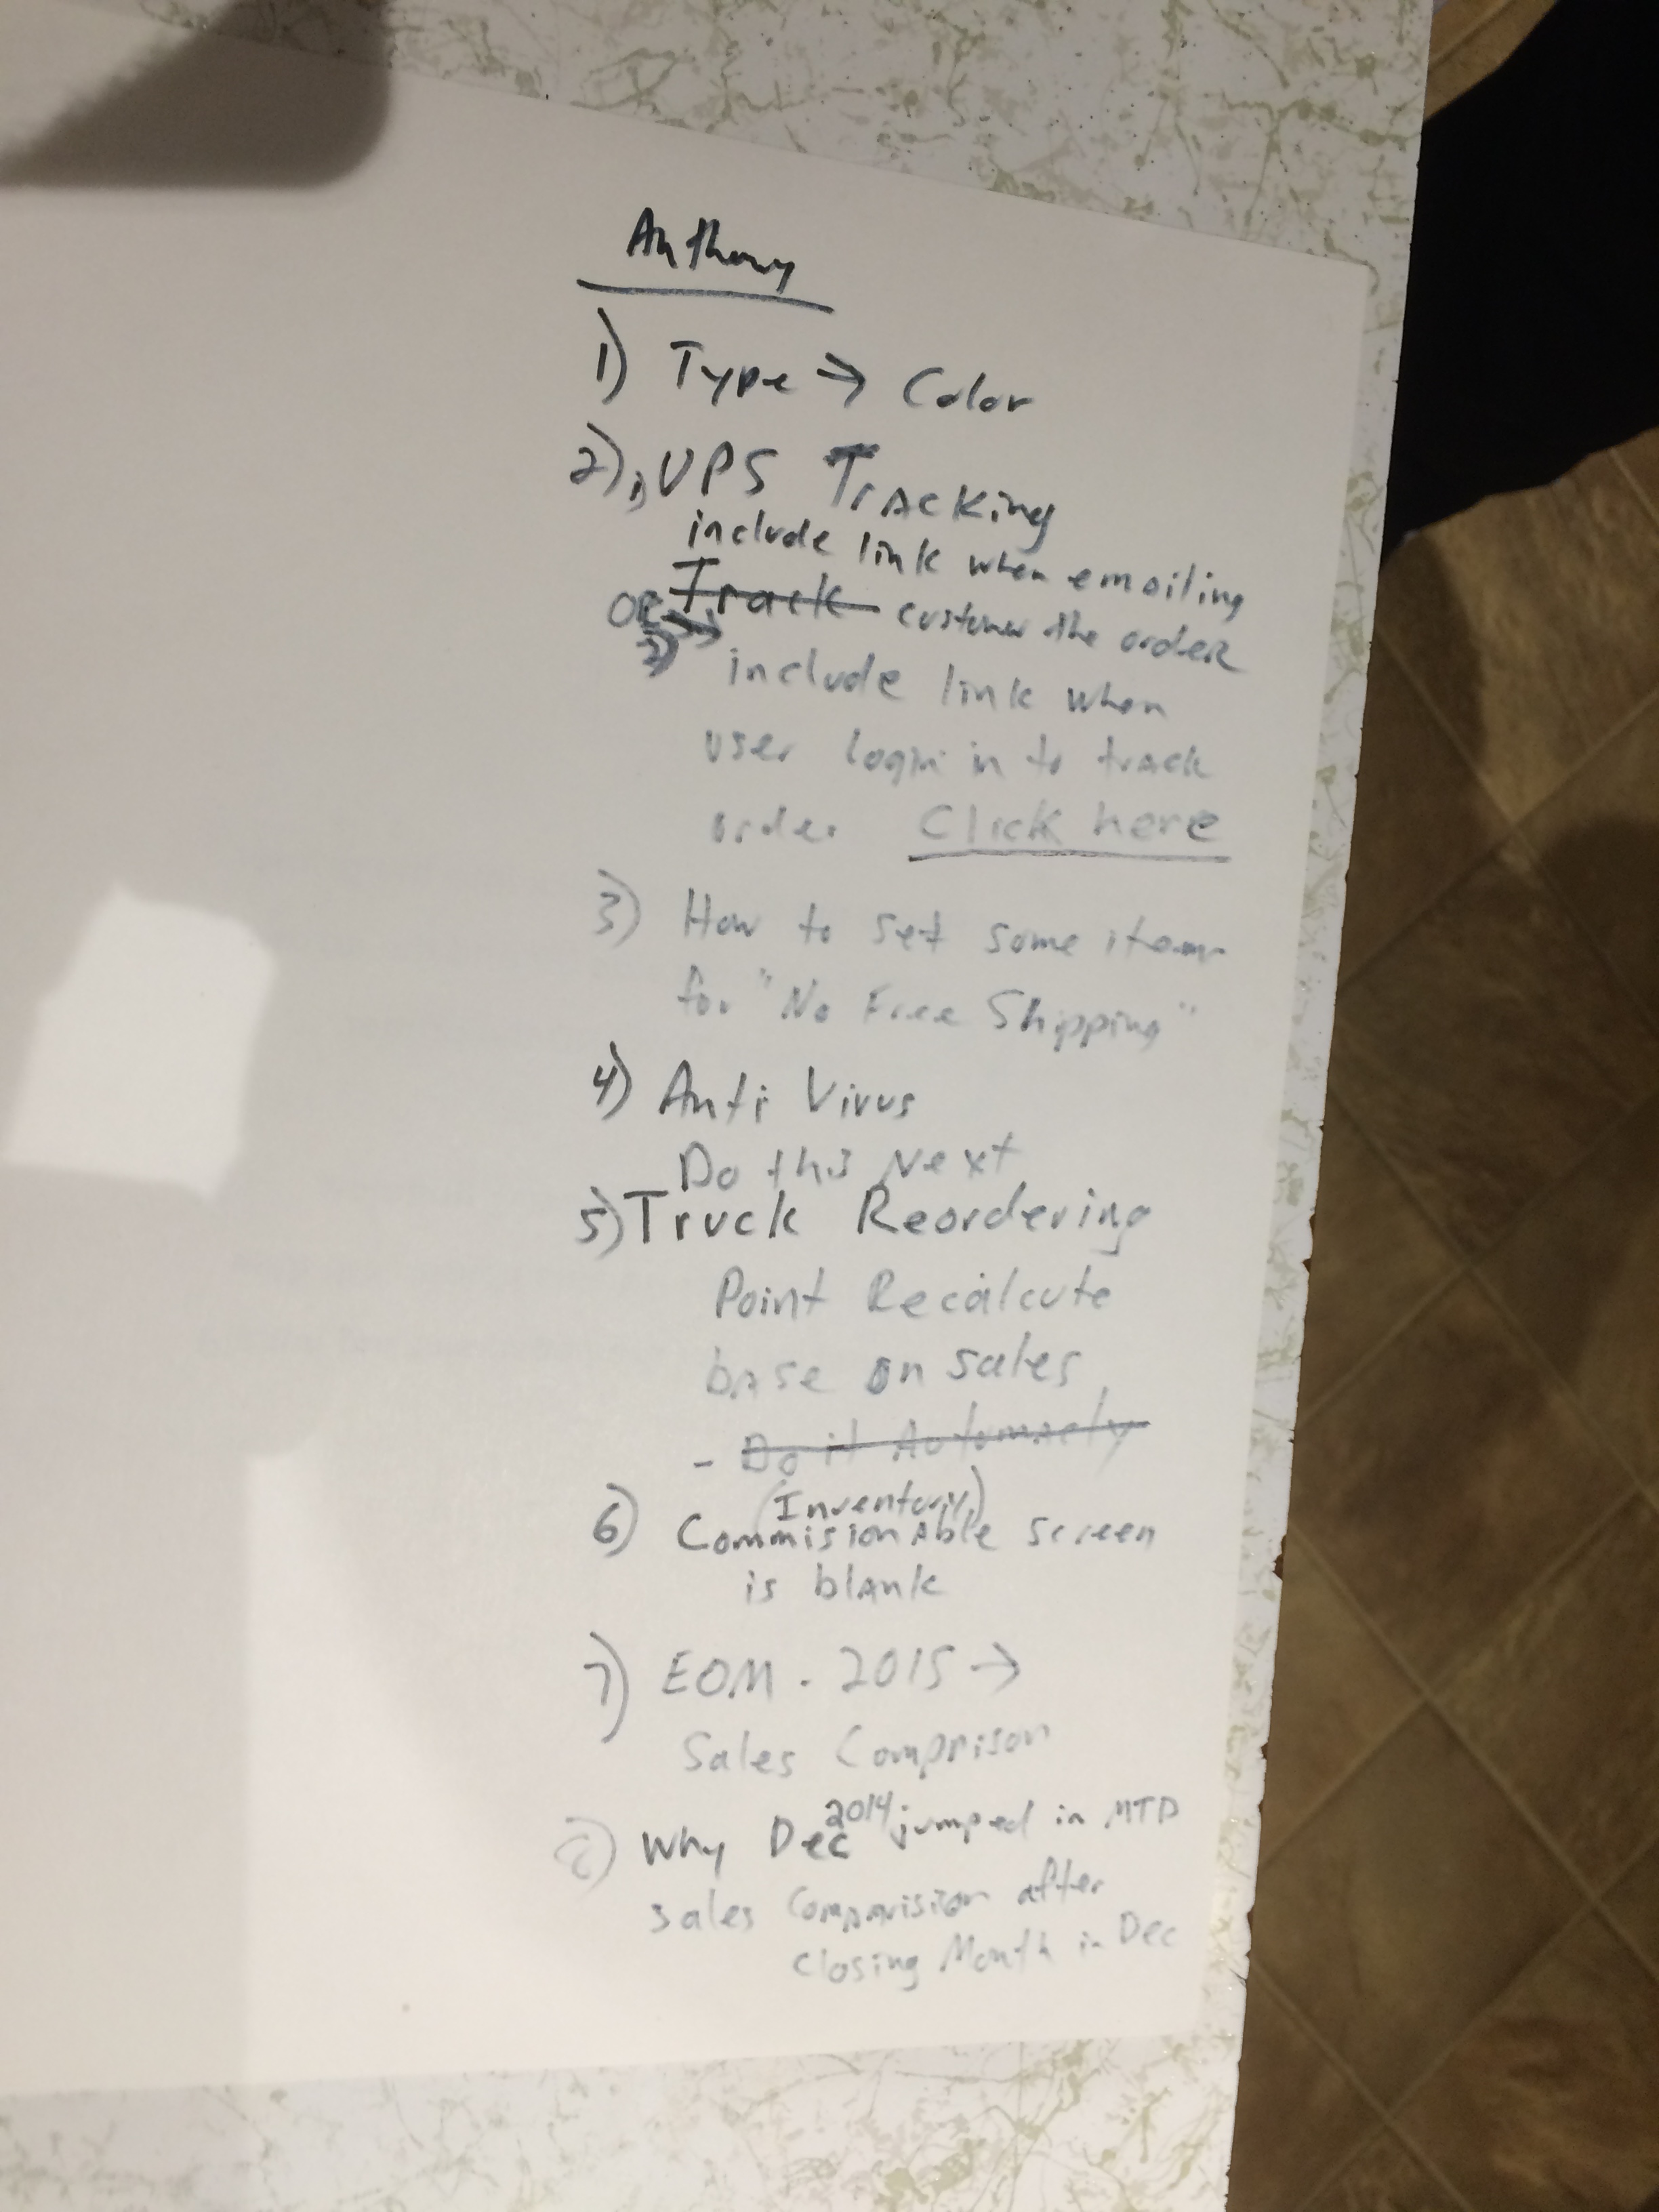 Anthony
1) Type → Color
2) 1) UPS Tracking
include link when emailing
Track customer the order
OR → 2)
include link when
user login in to track
order Click here
3) How to set some item
for "No Free Shipping"
4) Anti Virus
Do this Next
5) Truck Reordering
Point Recalcute
base on sales
- Do it Automacly
(Inventory)
6) Commisionable screen
is blank
7) EOM - 2015 →
Sales Comprison
8) Why Dec 2014 jumped in MTD
sales Comparision after
closing Month in Dec